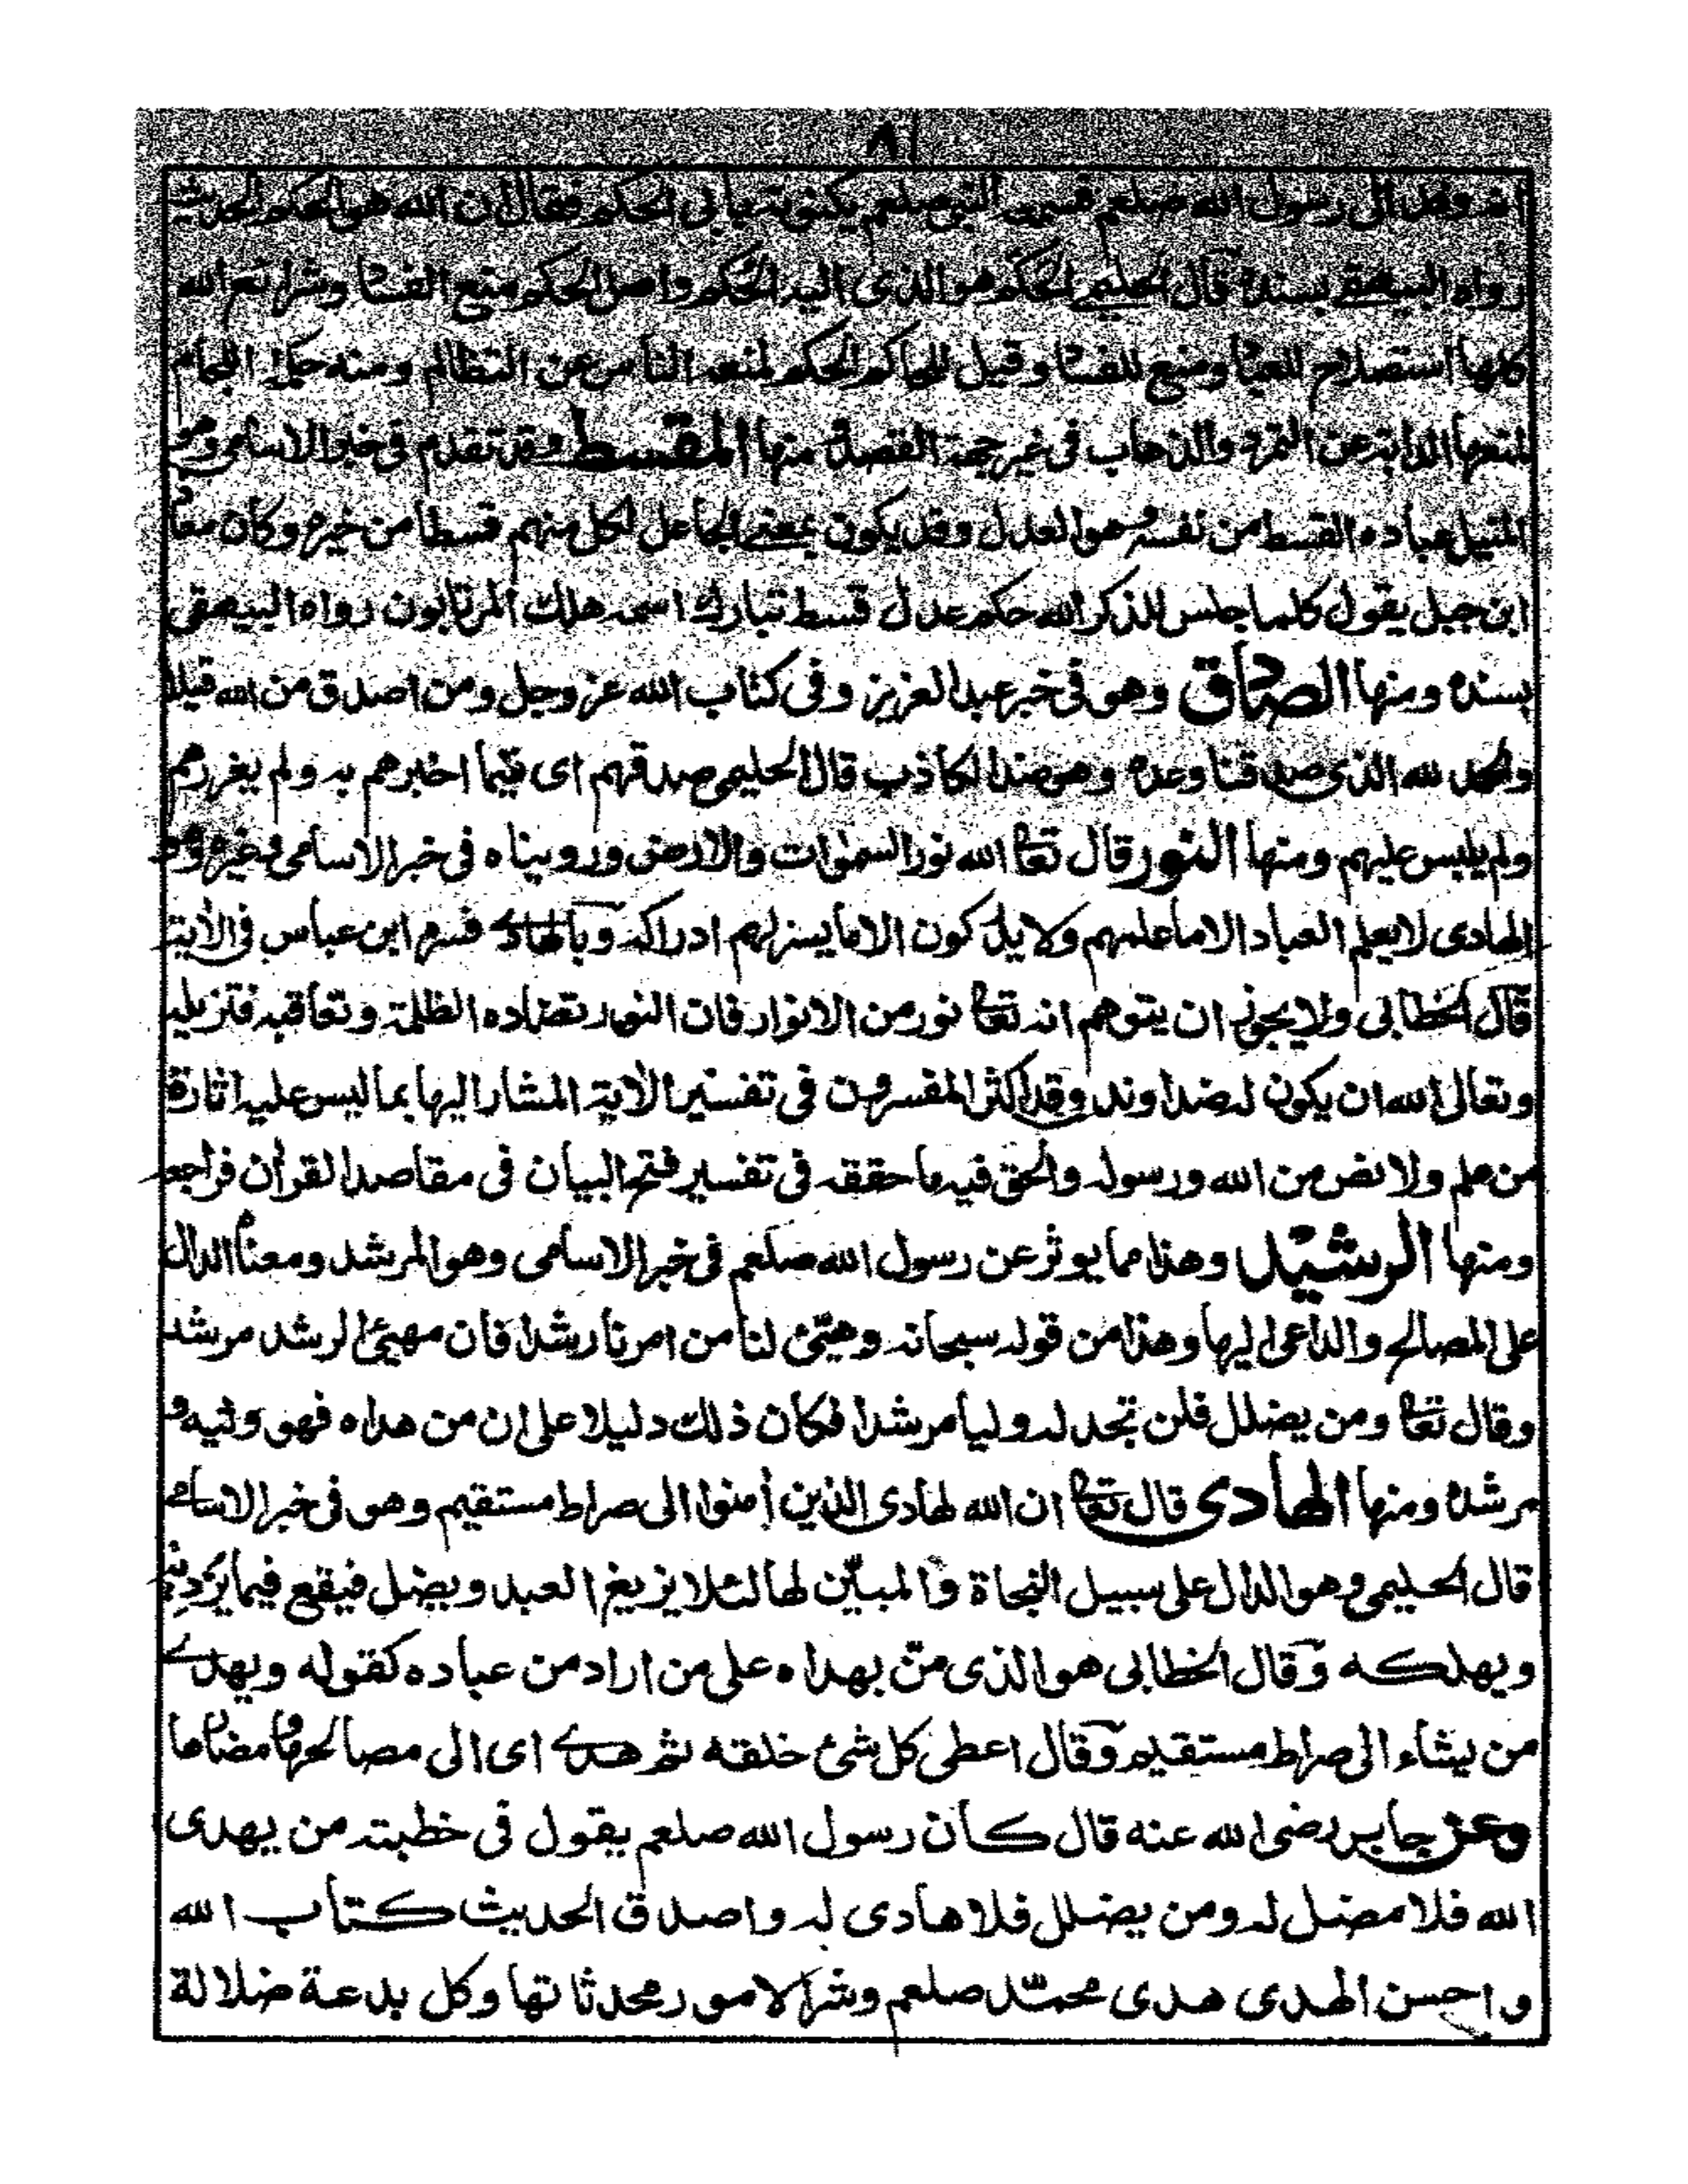 ٨١
انه وفد الى رسول الله صلعم فسمع النبي صلعم يكنونه بابى الحكم فقال ان الله هو الحكم الحديث
رواه البيهقي بسنده قال الحليمي الحكم هو الذى اليه الحكم واصل الحكم منع الفساد وشرائع الله
كلها استصلاح للعباد ومنع للفساد وقيل للحاكم الحكم لمنعه الناس عن التظالم ومنه حكمة اللجام
لمنعها الدابة عن التمرد والذهاب فى غير جهة القصد ومنها المقسط وقد تقدم فى خبر الاسامى وهو
المنيل عباده القسط من نفسه وهو العدل وقد يكون بمعنى الجاعل لكل منهم قسطا من خيره وكان معاذ
ابن جبل يقول كلما جلس للذكر الله حكم عدل قسط تبارك اسمه هلك المرتابون رواه البيهقى
بسنده ومنها الصادق وهو فى خبر عبد العزيز وفى كتاب الله عز وجل ومن اصدق من الله قيلا
والحمد لله الذى صدقنا وعده وهو ضد الكاذب قال الحليمى صدقهم اى فيما اخبرهم به ولم يغررهم
ولم يلبس عليهم ومنها النور قال تعا الله نور السموات والارض وروبيناه فى خبر الاسامى وغيره وهو
الهادى لا يعلم العباد الا ما علمهم ولا يدركون الا ما يسر لهم ادراكه وبالهادى فسره ابن عباس فى الأية
قال الخطابى ولا يجوز ان يتوهم انه تعا نور من الانوار فان النور تضاده الظلمة وتعاقبه فتزيله
وتعالى الله ان يكون له ضد او ند وقد اكثر المفسرون فى تفسير الأية المشار اليها بما ليس عليه اثارة
من علم ولا نص من الله ورسوله والحق فيه ما حققه فى تفسير فتح البيان فى مقاصد القرأن فراجعه
ومنها الرشيد وهذا مما يوثر عن رسول الله صلعم فى خبر الاسامى وهو المرشد ومعناه الدال
على المصالح والداعى اليها وهذا من قوله سبحانه وهيئ لنا من امرنا رشدا فان مهيئ الرشد مرشد
وقال تعا ومن يضلل فلن تجد له وليا مرشدا فكان ذلك دليلا على ان من هداه فهو وليه و
مرشده ومنها الهادى قال تعا ان الله لهادى الذين أمنوا الى صراط مستقيم وهو فى خبر الاسامى
قال الحليمى وهو الدال على سبيل النجاة والمبين لها لئلا يزيغ العبد ويضل فيقع فيما يرديه
ويهلكه وقال الخطابى هو الذى من بهداه على من اراد من عباده كقوله ويهدى
من يشاء الى صراط مستقيم وقال اعطى كل شئ خلقه ثم هدى اى الى مصالحها ومضارها
وعن جابر رضى الله عنه قال كان رسول الله صلعم يقول فى خطبته من يهدى
الله فلا مضل له ومن يضلل فلا هادى له واصدق الحديث كتاب الله
واحسن الهدى هدى محمد صلعم وشر الامور محدثاتها وكل بدعة ضلالة